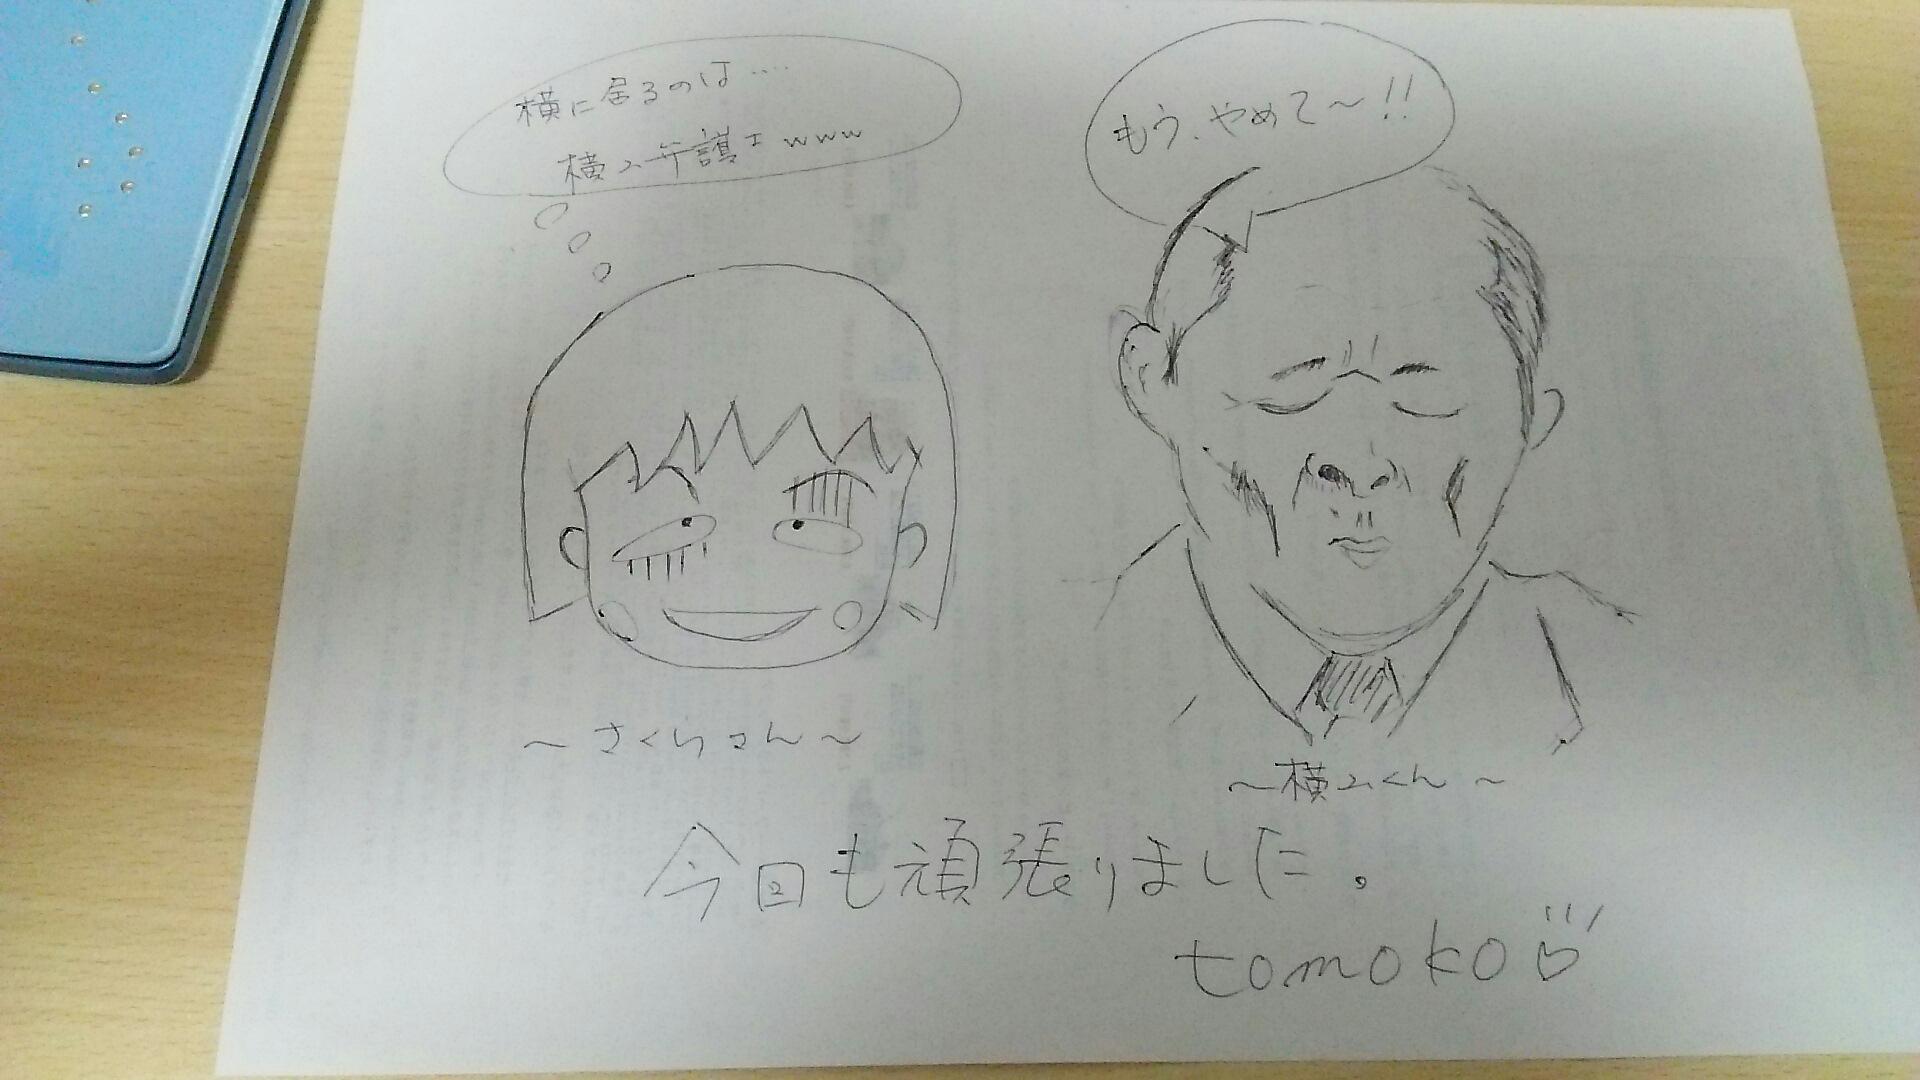 横に居るのは....
横ム弁護士www
もう、やめて〜!!
〜さくらさん〜
〜横ムくん〜
今回も頑張りました。
tomoko♡